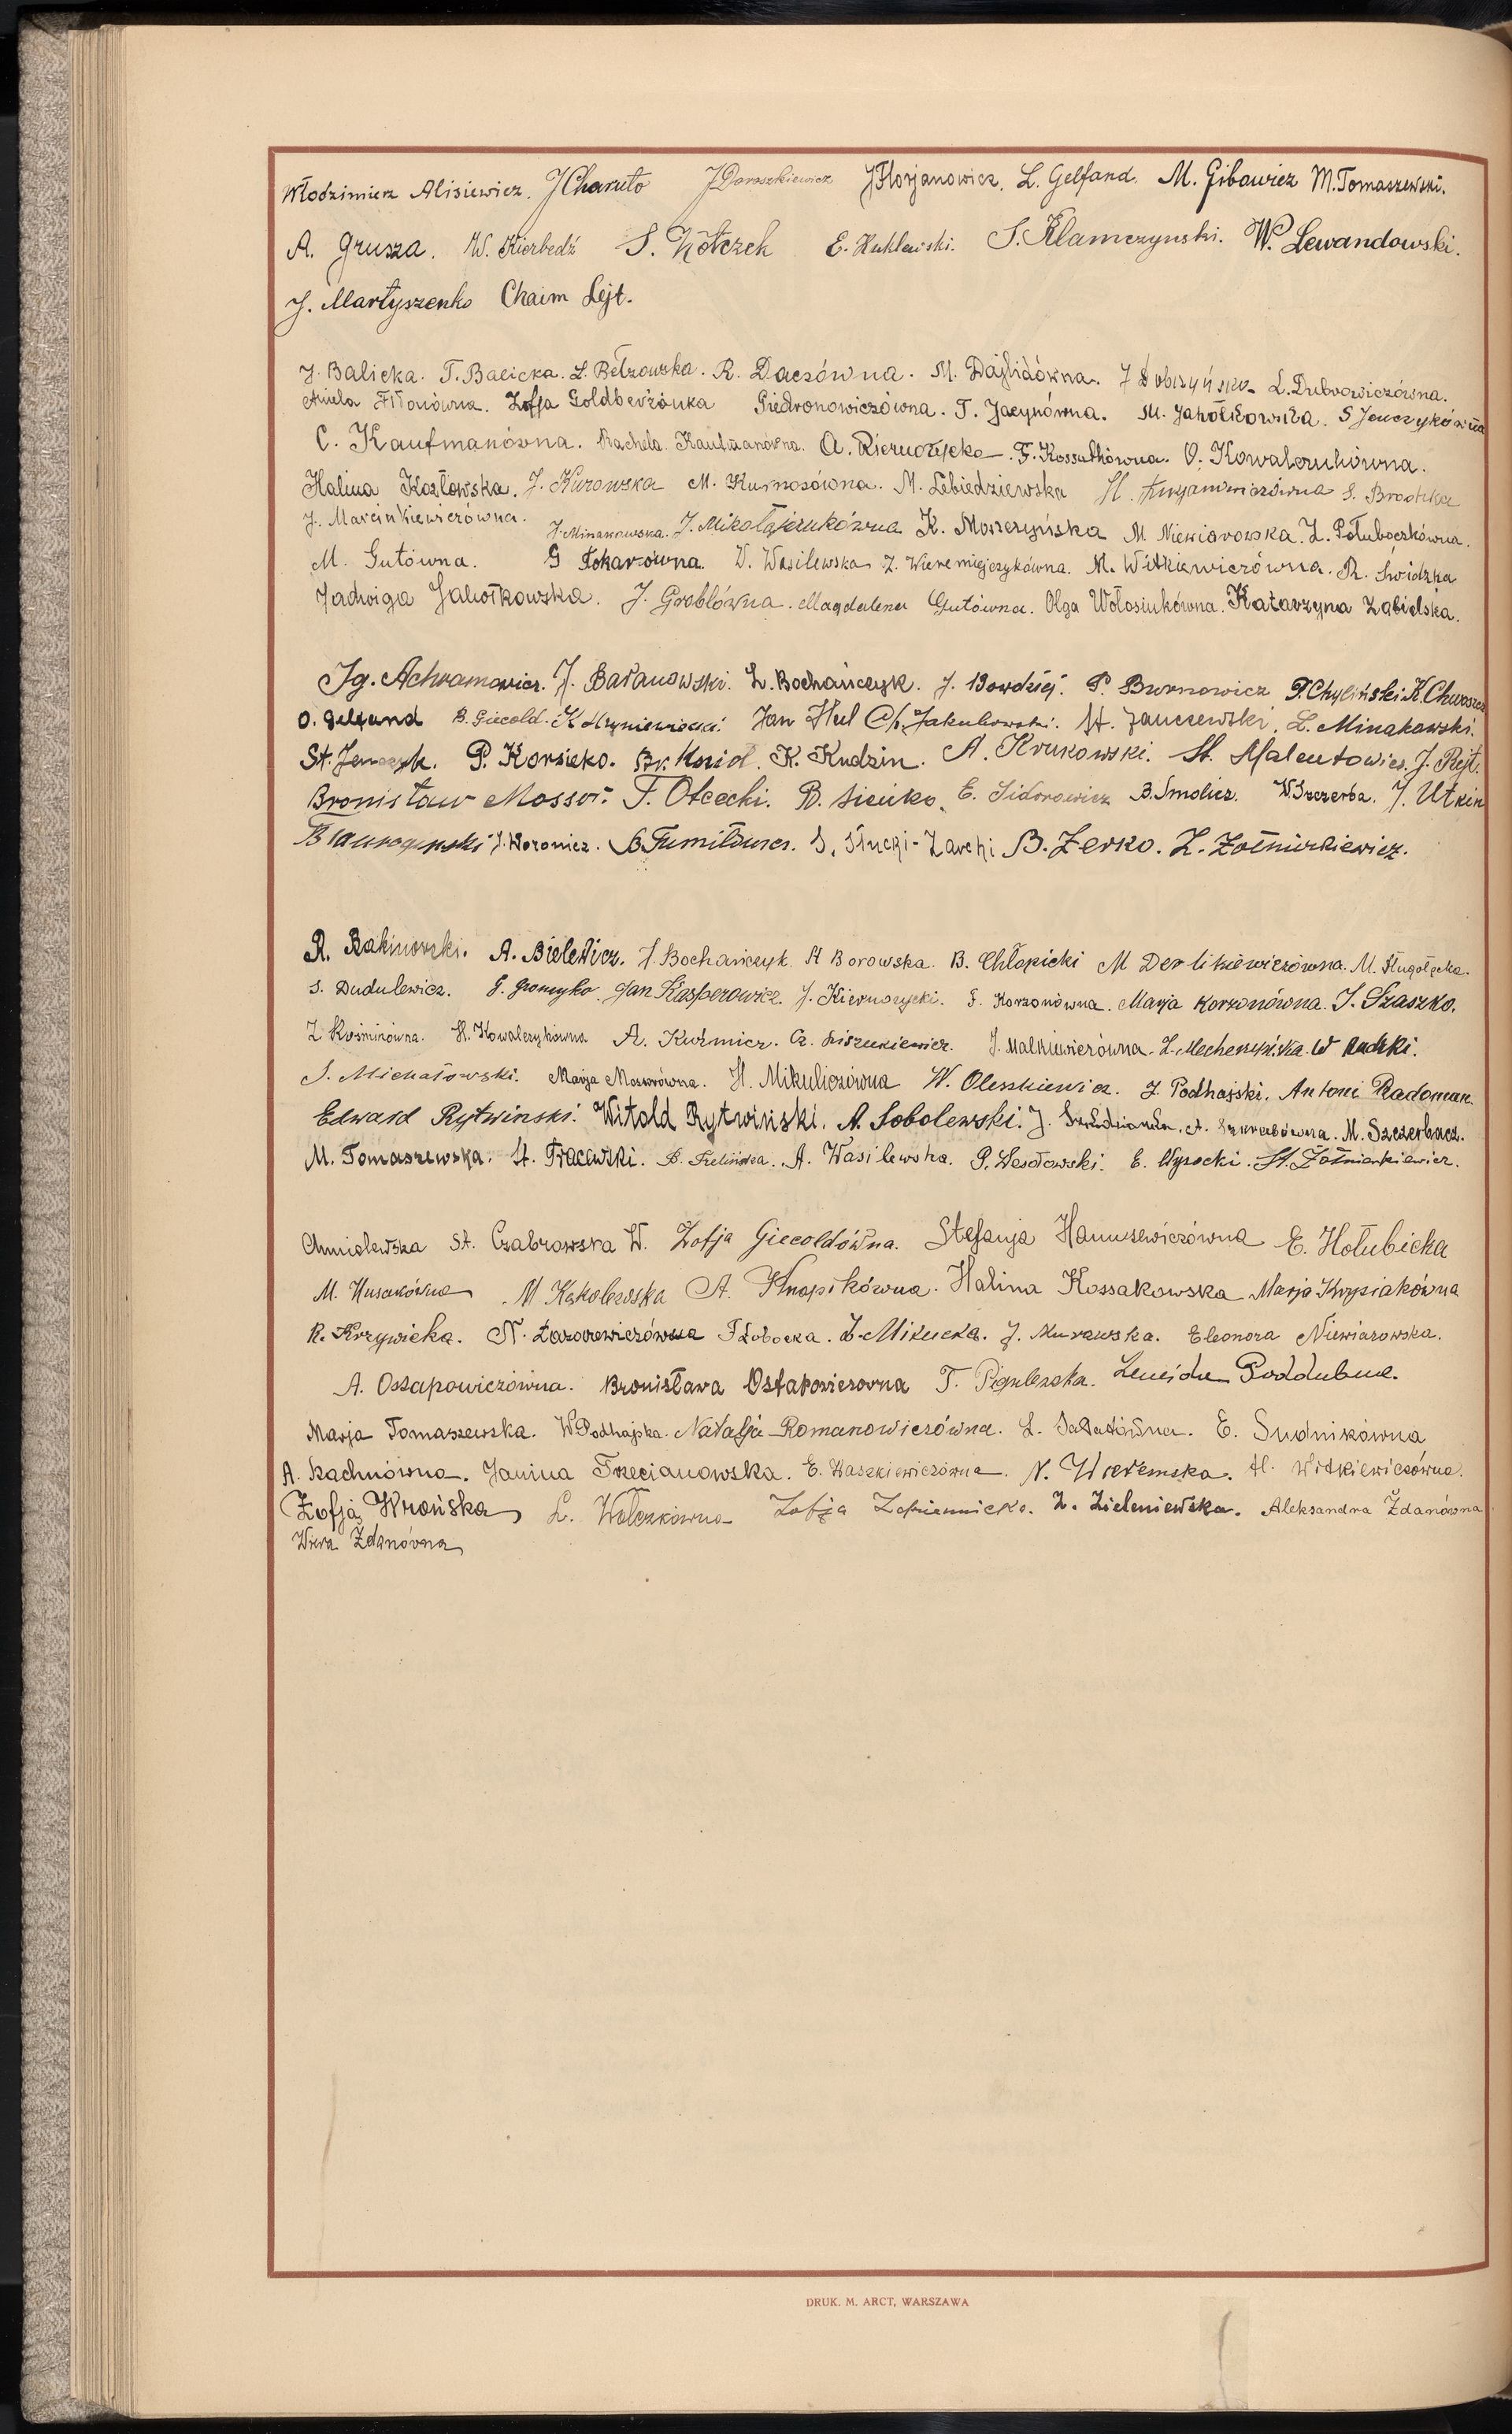 Włodzimierz Alisiewicz. J Charuto J Doroszkiewicz J Florjanowicz. L. Gelfand. M. Gibowicz M. Tomaszewski.
A. Grusza. W. Kierbedź S. Kołczek E. Kuklewski. S. Klamczynski. W. Lewandowski.
J. Martyszenko Chaim Lejt.
J. Balicka. T. Balicka. L. Bełzowska. R. Daczówna. M. Dajlidówna. J Dobrzyńska L. Dubrowiczówna.
Aniela Fiłonówna. Zofja Goldberżonka Giedronowiczówna. T. Jacynówna. M. Jahołkowska. S Jenczykówna
C. Kaufmanówna. Rachela Kaufmanówna. A. Kiernożycka. F. Kossuthówna. O. Kowalczukówna.
Halina Kozłowska. J. Kurowska M. Kurnosówna. M. Lebiedziewska H. S. Brodzka
J. Marcinkiewiczówna. J. Minakowska. J. Mikołajczukówna K. Moszczyńska M Niewiarowska. Z. Połuboczkówna.
M. Gutówna. G Tokarówna. W. Wasilewska Z. Wieremiejczykówna. M. Witkiewiczówna. R. Świdzka
Jadwiga Jahołkowska. J. Groblówna. Magdalena Gutówna. Olga Wołosiukówna. Katarzyna Zabielska.
Ig. Achramowicz. J. Baranowski. L. Bochańczyk. J. Bowdziej. P. Burnowicz P. Chyliński K. Chworszcz
O. Gelfand B. Giecold. K Hryniewiecki Jan Hul Ch. Jakubowski. St. Janczewski. L. Minakowski.
St. Jenczyk. P. Korsieko. Br. Kozid. K. Kudzin. A. Krukowski. St. Malentowicz. J. Rejt.
Bronisław Mossor. F. Ołdecki. B. Sieńko. E. Sidorowicz B. Smolicz. W Szczerba. J. Utkin
J. Woronicz. S. Słucki-Zarchi B. Zerko. Z. Żołnierkiewicz.
R. Rakinowski. A. Bielewicz. J. Bochańczyk. H Borowska. B. Chłopicki M Derlikiewiczówna. M. Długołęcka.
S. Dudulewicz. G. Gromyko. Jan Kasperowicz. J. Kiernożycki. G. Korzonówna. Marja Korzonówna. J. Szaszko.
Z Kośminówna. H. Kowalczykówna A. Kuźmicz. Cz. Liszukiewicz. J. Malkiewiczówna. Z. Mecherzyńska. W Rudzki.
S. Michałowski. Marja Mossorówna. H. Mikuliczówna W. Oleszkiewicz. J. Podhajski. Antoni Radoman.
Edward Rytwinski. Witold Rytwiński. A. Sobolewski. J. A. Szkrabówna. M. Szczerbacz.
M. Tomaszewska. St. Tracewski. B. Trelińska. A. Wasilewska. P. Wesołowski. E. Wysocki. St. Żołnierkiewicz.
Chmielewska St. Czabrowska W. Zofja Giecoldówna. Stefanja Hanusewiczówna E. Hołubicka
M. Husakówna M Kąkolewska A. Knapikówna. Halina Kossakowska Marja Krupiakówna
R. Krzywicka. N. Łazarewiczówna T Łobocka. Z. Mikucka. J. Murawska. Eleonora Niewiarowska.
A. Ostapowiczówna. Bronisława Ostapowiczówna T. Pigulewska. Zeneida Poddubna.
Marja Tomaszewska. W Podhajska. Natalja Romanowiczówna. L. Sałatówna. E. Sudnikówna
A. Rachnówna. Janina Trzecianowska. E. Waszkiewiczówna. N. Wieremska. H. Witkiewiczówna.
Zofja Wrońska L. Wołczkówna Zofja Zapiennicka. Z. Zieleniewska. Aleksandra Żdanówna
Wiera Żdanówna
DRUK. M. ARCT, WARSZAWA